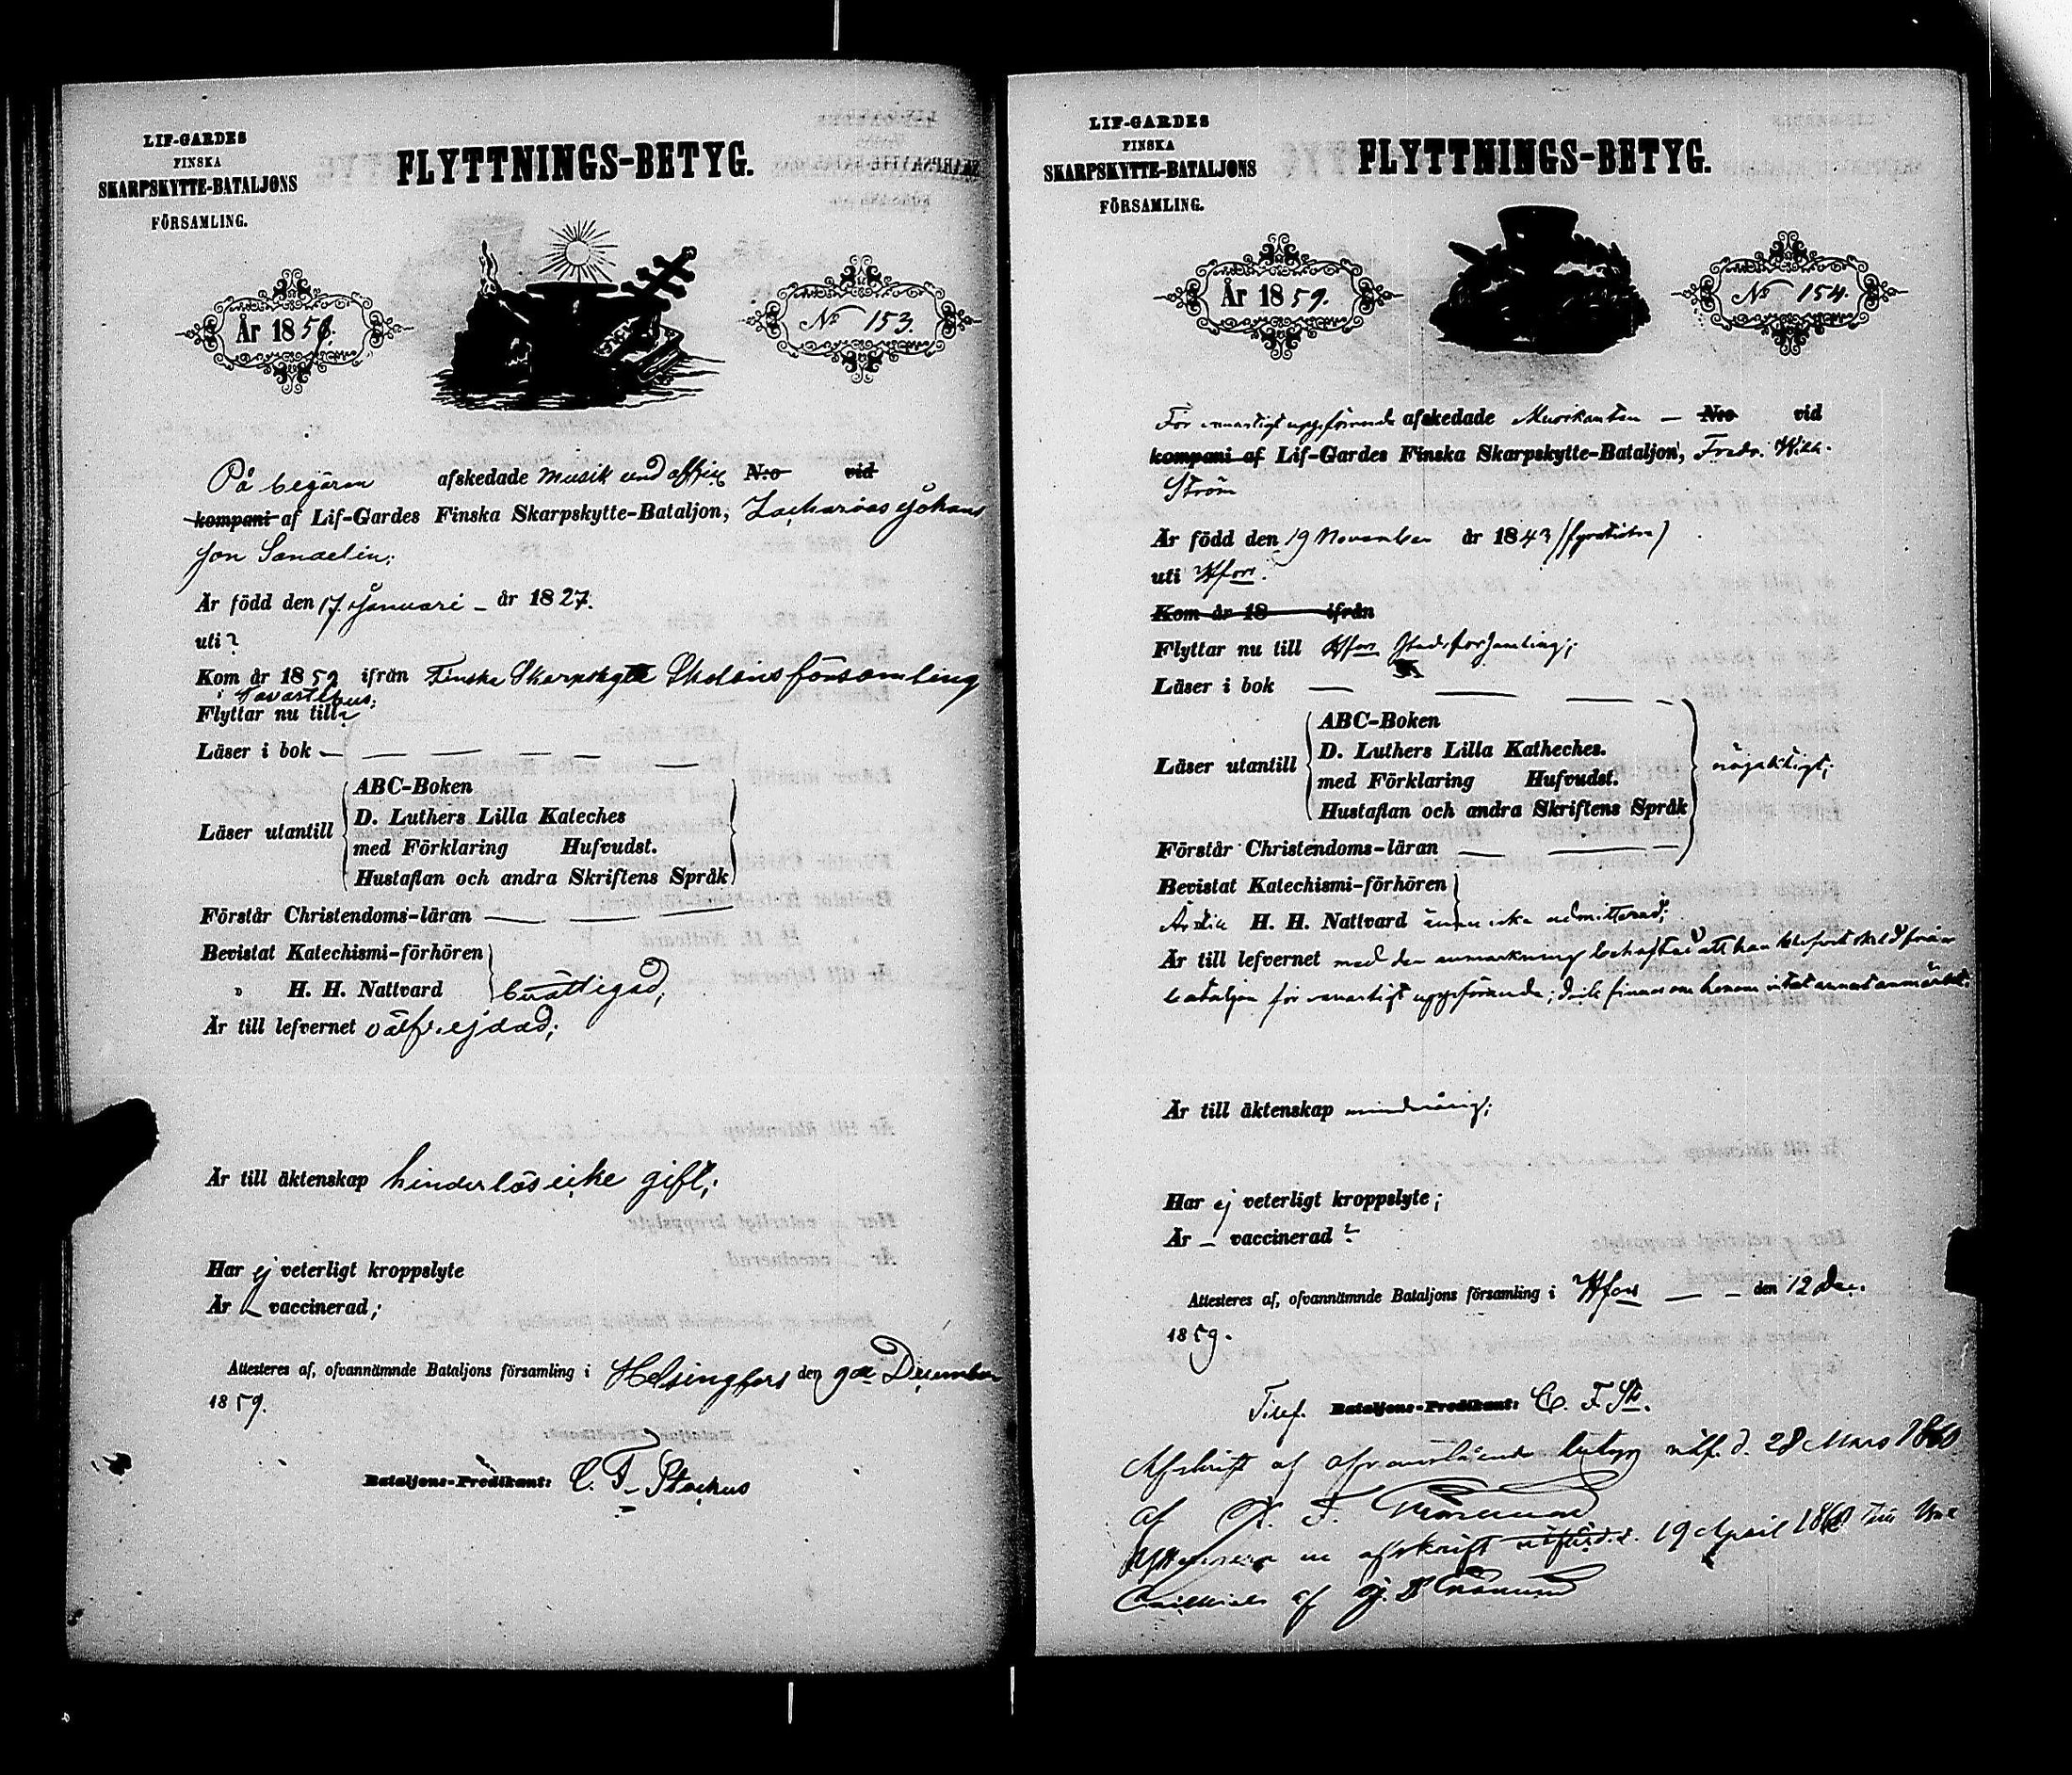 LIF-GARDES
FINSKA
SKARPSKYTTE-BATALJONS
FÖRSAMLING.
FLYTTNINGS-BETYG.
År 1859.
No 153.
På begäran afskedade Musik und N:o vid
kompani af Lif-Gardes Finska Skarpskytte-Bataljon, Zacharias Johans
son Sandelin;
Är född den 17 Januari – år 1827.
uti?
Kom år 1859 ifrån Finska Skarpskytte Skolans församling
i Tavastehus;
Flyttar nu till?
Läser i bok — — — — —
Läser utantill
ABC-Boken
D. Luthers Lilla Kateches
med Förklaring Hufvudst.
Hustaflan och andra Skriftens Språk
Förstår Christendoms-läran — — —
Bevistat Katechismi-förhören
" H. H. Nattvard berättigad;
Är till lefvernet välfrejdad;
Är till äktenskap hinderlös icke gift;
Har ej veterligt kroppslyte
Är – vaccinerad;
Attesteres af, ofvannämnde Bataljons församling i Helsingfors den 9de December
1859.
Bataljons-Predikant: C. F. Stockus
LIF-GARDES
FINSKA
SKARPSKYTTE-BATALJONS
FÖRSAMLING.
FLYTTNINGS-BETYG.
År 1859.
No 154.
För vanartigt uppförande afskedade Musikanten — N:o vid
kompani af Lif-Gardes Finska Skarpskytte-Bataljon, Fredr. Wilh.
Ström
Är född den 19 November år 1843 (fyratiotre)
uti Hfors.
Kom år 18 ifrån
Flyttar nu till Hfors Stadsförsamling;
Läser i bok — — — —
Läser utantill
ABC-Boken
D. Luthers Lilla Katheches.
med Förklaring Hufvudst.
Hustaflan och andra Skriftens Språk
nöjaktigt;
Förstår Christendoms-läran — — —
Bevistat Katechismi-förhören
Är till H. H. Nattvard ännu icke admitterad;
Är till lefvernet med den anmärkning behäftad att han blifvit skild från
bataljon för vanartigt uppförande; finnes om honom intet annat anmärkt.
Är till äktenskap minderårig;
Har ej veterligt kroppslyte;
Är – vaccinerad?
Attesteres af, ofvannämnde Bataljons församling i Hfors — – den 12 Dec.
1859.
Bataljons-Predikant: C. F. St.
Afskrift af ofvanstående betyg utf. d. 28 Mars 1860
af F.
en afskrift utfärd. d. 19 April 1860
af